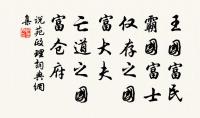 王國富民
霸國富士
仅存之國
富大夫
亡道之國
富仓府
说苑政理词典網
集